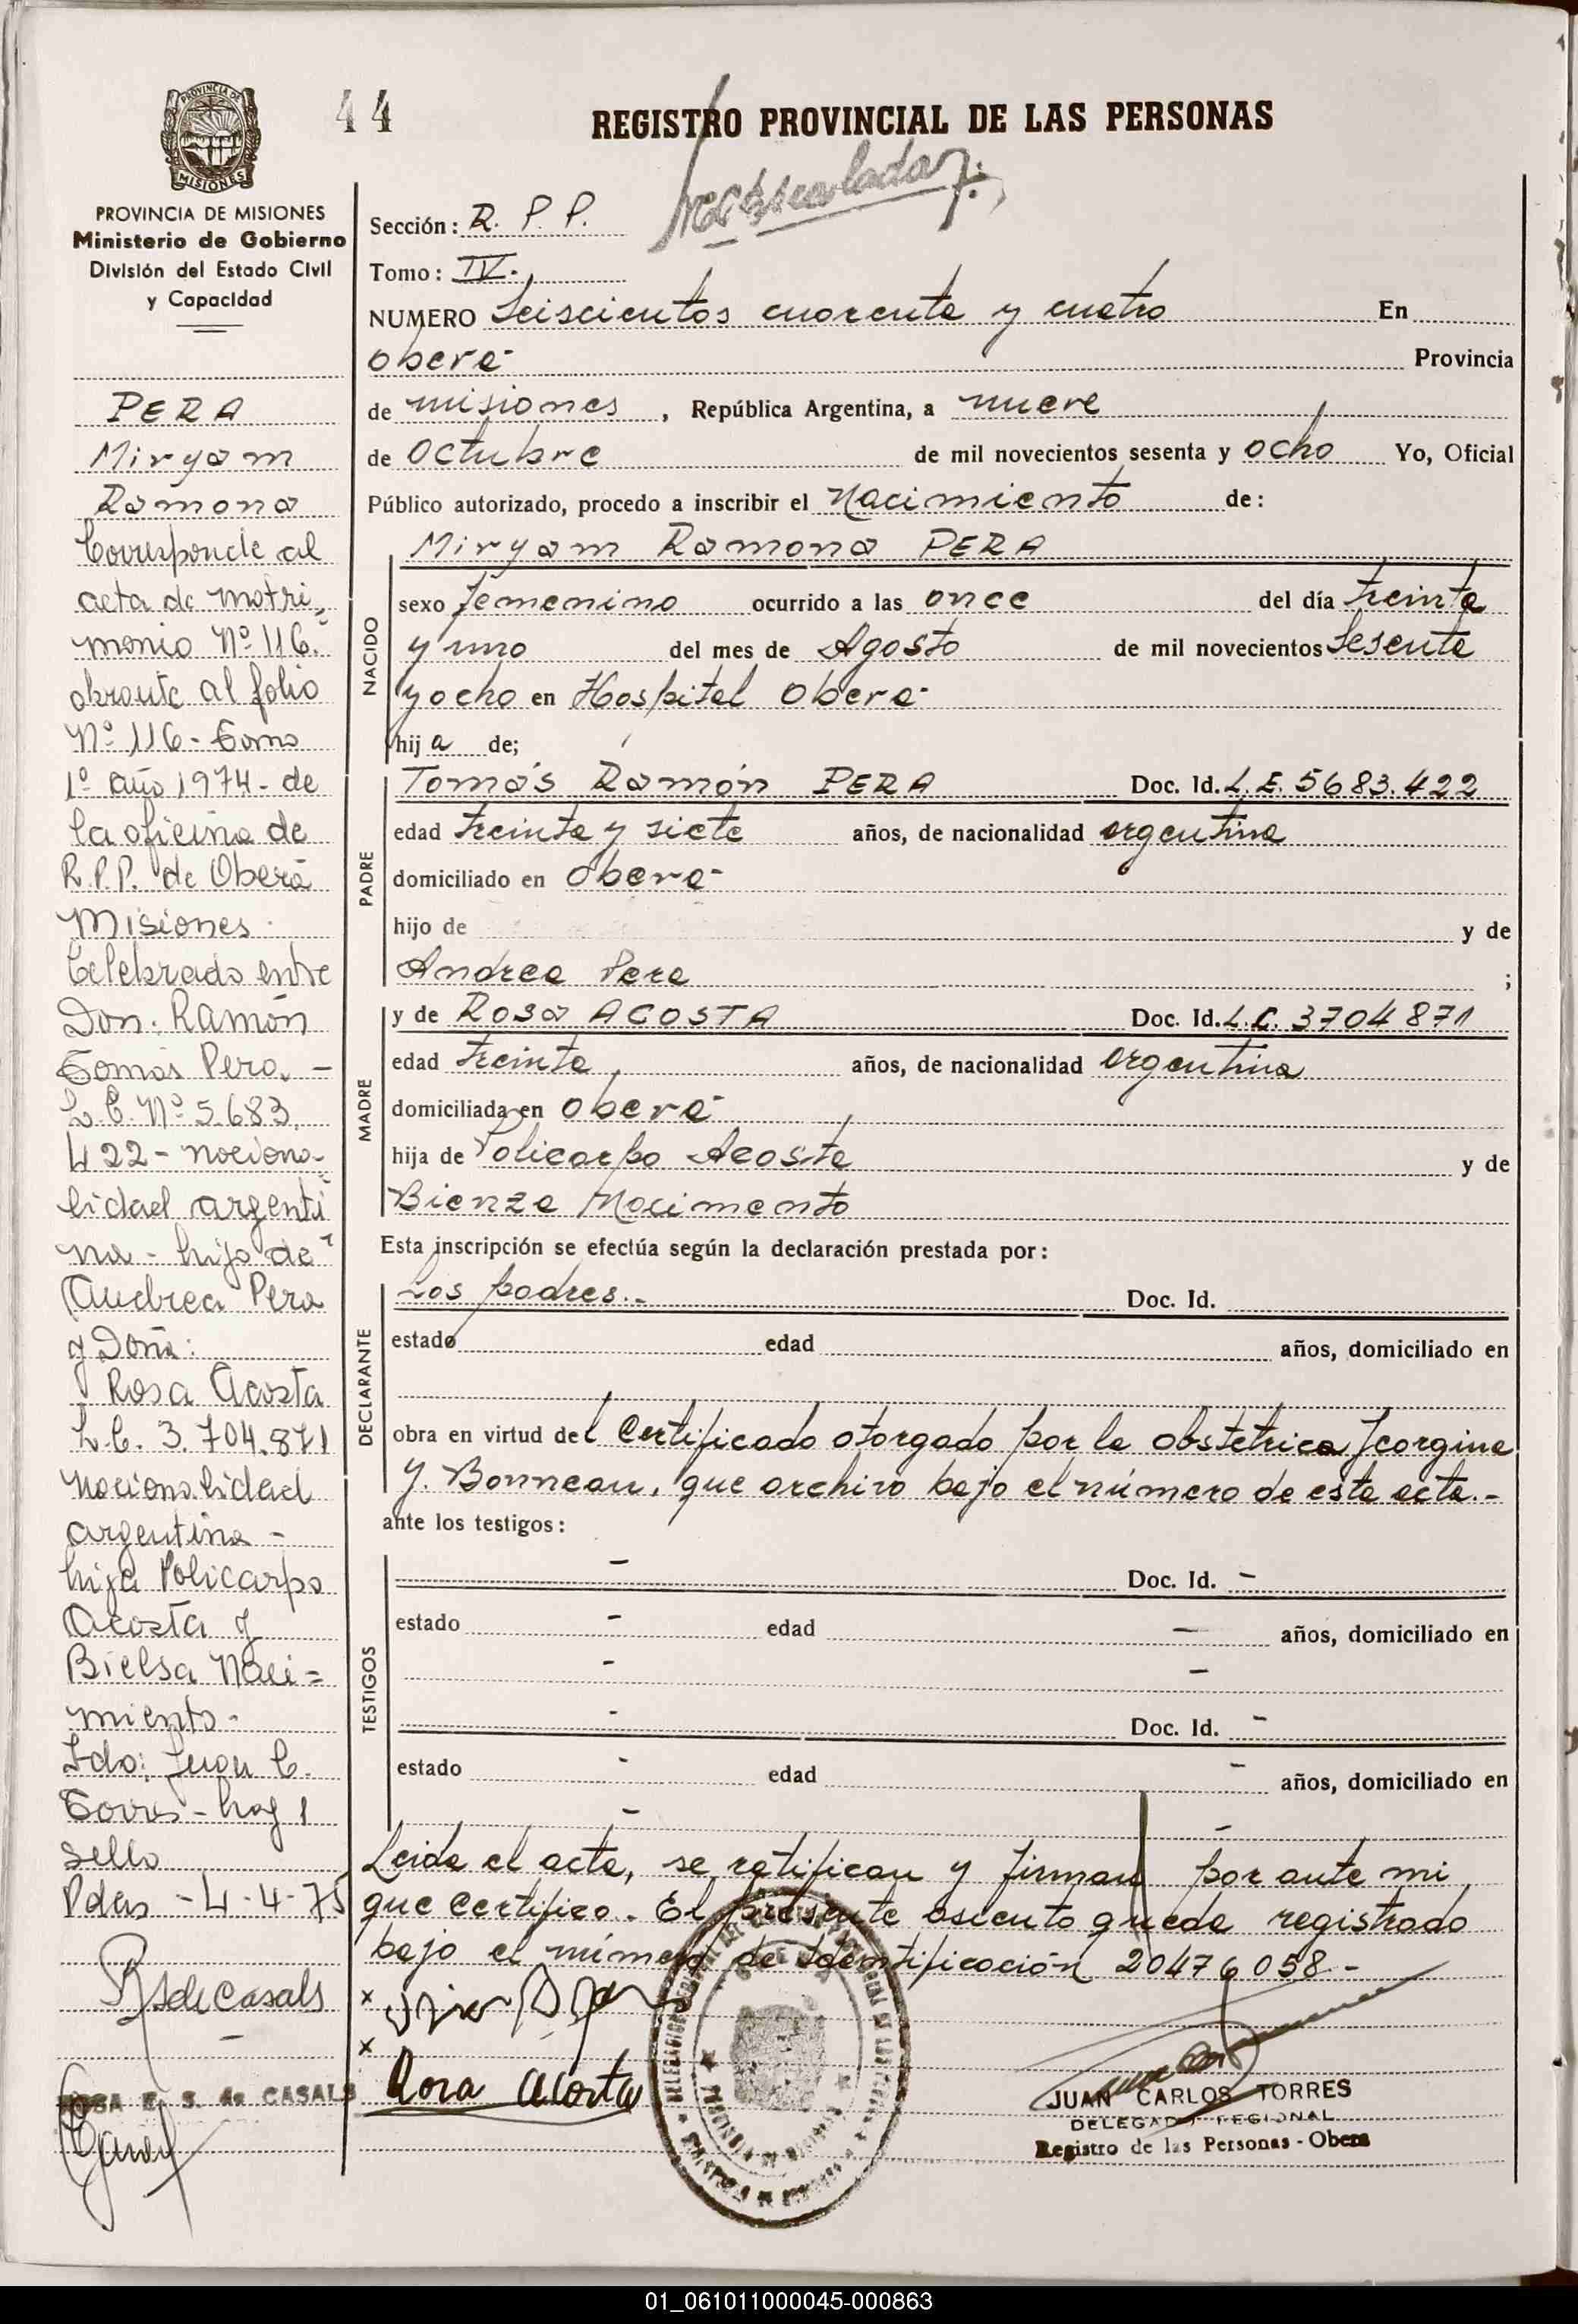 44
REGISTRO PROVINCIAL DE LAS PERSONAS
PROVINCIA DE MISIONES
MISIONES
PROVINCIA DE MISIONES
Ministerio de Gobierno
División del Estado Civil
y Capacidad
PERA
Miryam
Ramona
Corresponde al
acta de matri-
monio Nº 116.
obrante al folio
Nº 116 - Tomo
1º año 1974 - de
la oficina de
R.P.P. de Oberá
Misiones.
Celebrado entre
Don. Ramón
Tomás Pera. -
L.E. Nº 5.683.
422 - naciona-
lidad argenti
na - hijo de
Andrea Pera
y Doña:
Rosa Acosta
L.C. 3.704.871
nacionalidad
argentina -
hija Policarpo
Acosta y
Bielsa Naci=
miento.
Fdo: Juan C.
Torres - hay 1
sello
Pdas - 4-4-75
RSdeCasals
ROSA E. S. de CASALS
Sección: R. P. P.
Tomo: IV.
NUMERO Seiscientos cuarenta y cuatro En
Oberá Provincia
de misiones, República Argentina, a nueve
de Octubre de mil novecientos sesenta y ocho Yo, Oficial
Público autorizado, procedo a inscribir el Nacimiento de:
NACIDO
Miryam Ramona PERA
sexo femenino ocurrido a las once del día treinta
y uno del mes de Agosto de mil novecientos Sesenta
y ocho en Hospital Oberá
hija de;
PADRE
Tomás Ramón PERA Doc. Id. L.E. 5683.422
edad treinta y siete años, de nacionalidad argentina
domiciliado en Oberá
hijo de y de
Andrea Pera ;
MADRE
y de Rosa ACOSTA Doc. Id. L.C. 3704871
edad treinta años, de nacionalidad argentina
domiciliada en Oberá
hija de Policarpo Acosta y de
Bienza Nacimento
Esta inscripción se efectúa según la declaración prestada por:
DECLARANTE
Los padres.- Doc. Id.
estado edad años, domiciliado en
obra en virtud del Certificado otorgado por la obstetrica Jeorgina
Y. Bonneau, que archivo bajo el número de esta acta.-
ante los testigos:
TESTIGOS
- Doc. Id. -
estado - edad - años, domiciliado en
- -
- Doc. Id. -
estado - edad - años, domiciliado en
- -
Leida el acta, se ratifican y firman por ante mi
que certifico. El presente asiento queda registrado
bajo el número de Identificación 20476058.-
x
x
Rosa Acosta
JUAN CARLOS TORRES
DELEGADO REGIONAL
Registro de las Personas - Obera
01_061011000045-000863